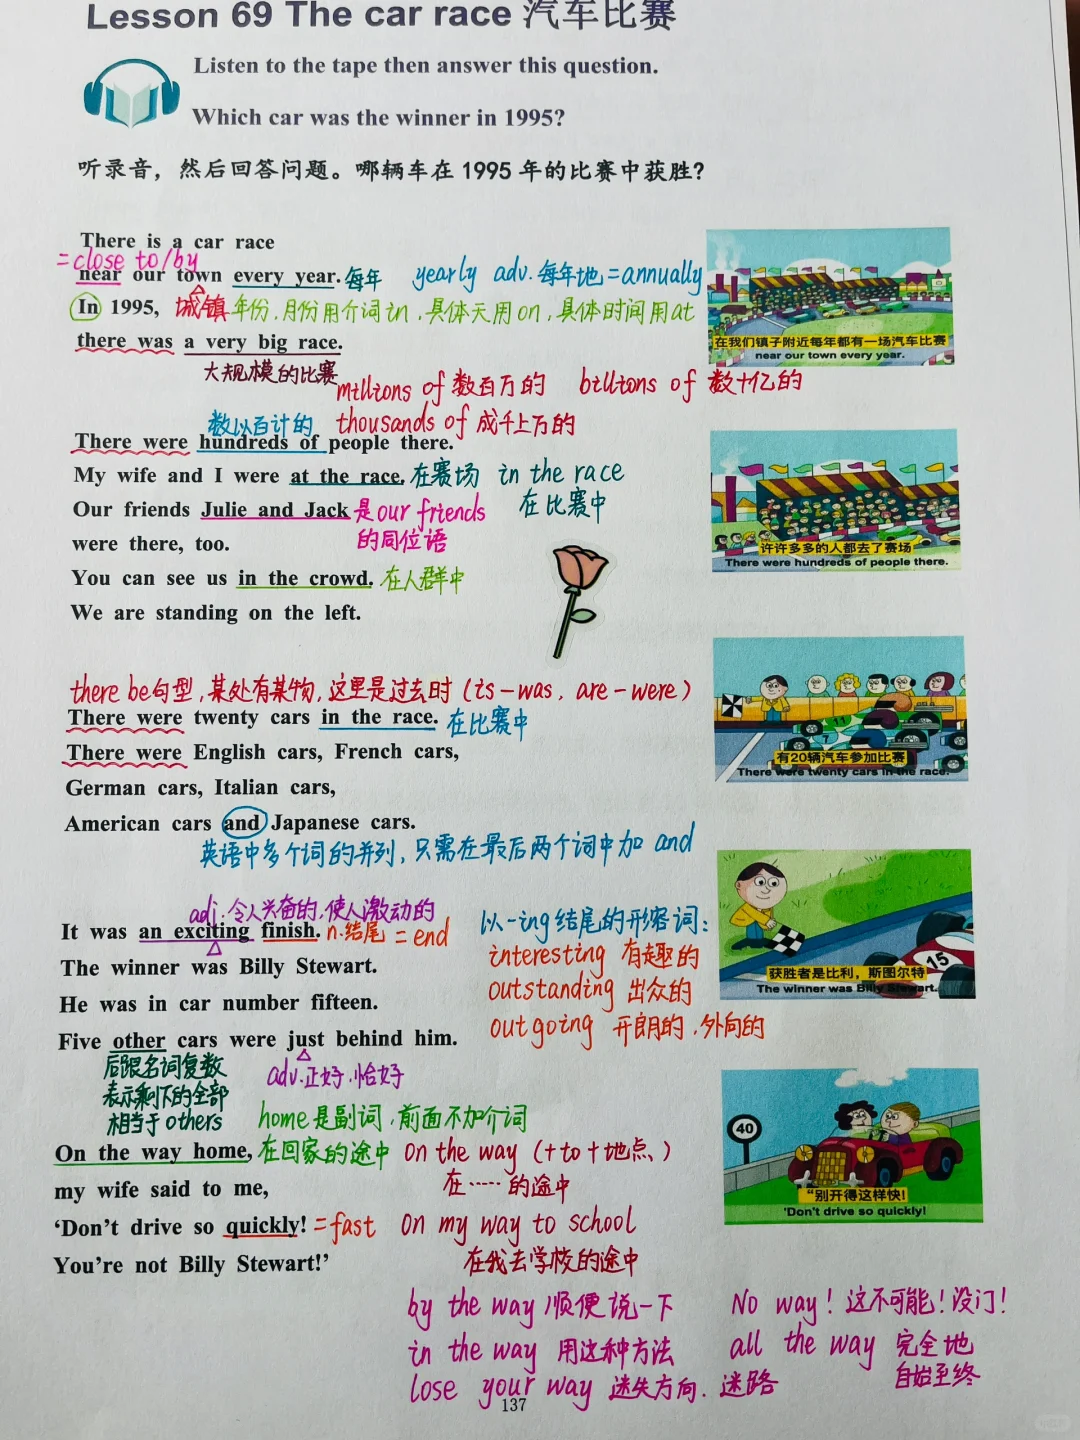 Lesson 69 The car race 汽车比赛
Listen to the tape then answer this question.
Which car was the winner in 1995?
听录音，然后回答问题。哪辆车在 1995 年的比赛中获胜?
There is a car race
=close to/by
near our town every year. 每年 yearly adv. 每年地=annually
In 1995, 城镇 年份,月份用介词in,具体天用on,具体时间用at
there was a very big race.
大规模的比赛
millions of 数百万的 billions of 数十亿的
数以百计的 thousands of 成千上万的
There were hundreds of people there.
My wife and I were at the race. 在赛场 in the race
在比赛中
Our friends Julie and Jack 是our friends
的同位语
were there, too.
You can see us in the crowd. 在人群中
We are standing on the left.
there be句型,某处有某物,这里是过去时(is-was, are-were)
There were twenty cars in the race. 在比赛中
There were English cars, French cars,
German cars, Italian cars,
American cars and Japanese cars.
英语中多个词的并列,只需在最后两个词中加 and
adj.令人兴奋的,使人激动的
It was an exciting finish. n.结尾 =end
The winner was Billy Stewart.
He was in car number fifteen.
Five other cars were just behind him.
以-ing结尾的形容词:
interesting 有趣的
outstanding 出众的
outgoing 开朗的,外向的
后跟名词复数
表示剩下的全部
相当于others
adv.正好,恰好
home是副词,前面不加介词
On the way home, 在回家的途中 on the way (+to+地点)
在……的途中
my wife said to me,
‘Don’t drive so quickly! =fast on my way to school
在我去学校的途中
You’re not Billy Stewart!’
by the way 顺便说一下 No way! 这不可能!没门!
in the way 用这种方法 all the way 完全地
自始至终
lose your way 迷失方向.迷路
137
在我们镇子附近每年都有一场汽车比赛
near our town every year.
许许多多的人都去了赛场
There were hundreds of people there.
11
7
有20辆汽车参加比赛
There were twenty cars in the race.
15
获胜者是比利，斯图尔特
The winner was Billy Stewart.
40
“别开得这样快!
'Don't drive so quickly!